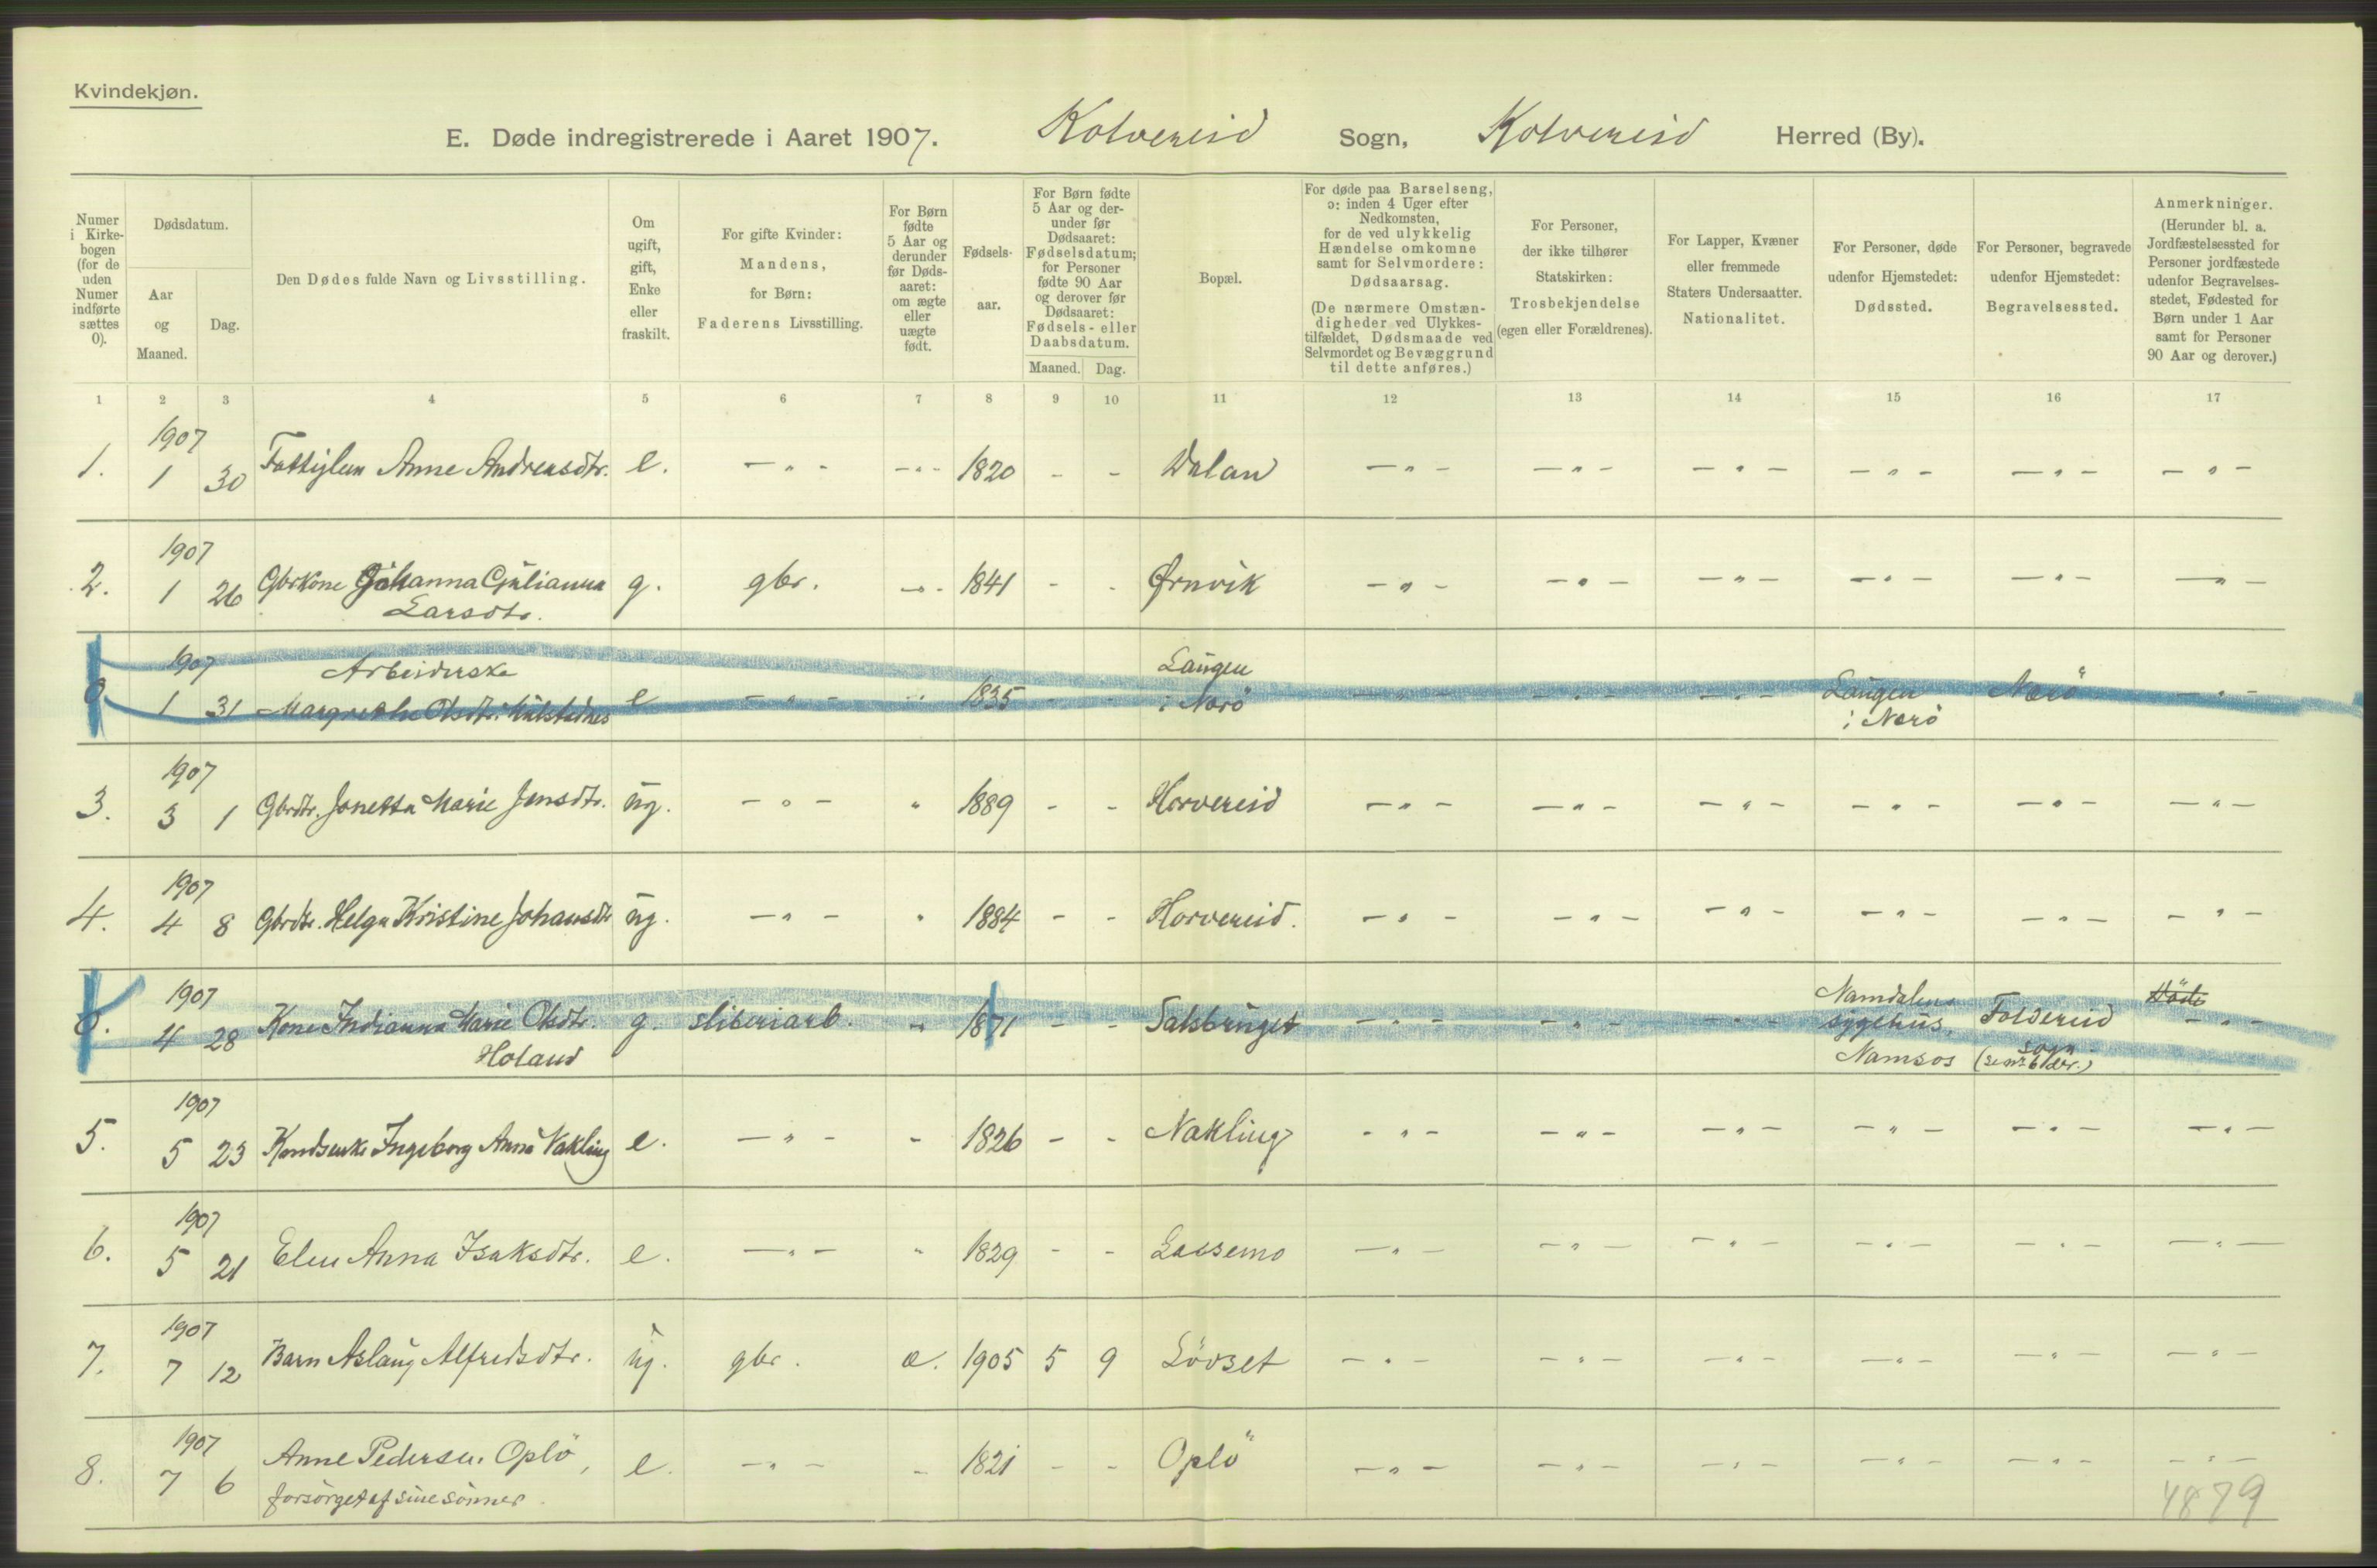 Kvindekjøn.
E. Døde indregistrerede i Aaret 1907. Kolvereid Sogn, Kolvereid Herred (By).
Numer i Kirke-bogen (for de uden Numer indførte sættes 0).
Dødsdatum.
Aar og Maaned.
Dag.
Den Dødes fulde Navn og Livsstilling.
Om ugift, gift, Enke eller fraskilt.
For gifte Kvinder: Mandens, for Børn: Faderens Livsstilling.
For Børn fødte 5 Aar og derunder før Døds-aaret: om ægte eller uægte født.
Fødsels-aar.
For Børn fødte 5 Aar og der-under før Dødsaaret: Fødselsdatum; for Personer fødte 90 Aar og derover før Dødsaaret: Fødsels- eller Daabsdatum.
Maaned. Dag.
Bopæl.
For døde paa Barselseng, ɔ: inden 4 Uger efter Nedkomsten, for de ved ulykkelig Hændelse omkomne samt for Selvmordere: Dødsaarsag.
(De nærmere Omstæn-digheder ved Ulykkes-tilfældet, Dødsmaade ved Selvmordet og Bevæggrund til dette anføres.)
For Personer, der ikke tilhører Statskirken: Trosbekjendelse (egen eller Forældrenes).
For Lapper, Kvæner eller fremmede Staters Undersaatter. Nationalitet.
For Personer, døde udenfor Hjemstedet: Dødssted.
For Personer, begravede udenfor Hjemstedet: Begravelsessted.
Anmerkninger. (Herunder bl. a. Jordfæstelsessted for Personer jordfæstede udenfor Begravelses-stedet, Fødested for Børn under 1 Aar samt for Personer 90 Aar og derover.)
1 2 3 4 5 6 7 8 9 10 11 12 13 14 15 16 17
1907
1. 1 30 Fattiglem Anne Andreasdtr. e. – „ - – „ - 1820 - - Dalan – „ - – „ - – „ – – „ - – „ – – „ –
1907
2. 1 26 Gbrkone Johanna Gjulianna g. gbr. – „ - 1841 - - Ørnvik – „ - – „ – – „ – – „ – – „ – – „ –
Larsdtr.
1907 Arbeiderske Laugen
0 1 31 Margrethe Olsdtr. e – „ – „ 1835 - - i Nærö – „ – – „ – – „ – Laugen Nærö – „ –
i Nærö
1907
3. 3 1 Gbrdtr. Jonetta Marie Jensdtr. ug. – „ – „ 1889 - - Horvereid – „ – – „ – – „ – – „ – – „ – – „ –
1907
4. 4 8 Gbrdtr. Helga Kristine Johansdtr ug. – „ – „ 1884 - - Horvereid. – „ – – „ – – „ – – „ – – „ – – „ –
1907 Namdalens Döde
0. 4 28 Kone Indianna Marie Olsdtr. g. sliberiarb. „ 1871 - - Salsbruget – „ – – „ – – „ – sygehus, Foldereid – „ –
Holand Namsos sogn
1907
5. 5 23 Ingeborg Anna Nakling e. – „ – - 1826 - - Nakling - „ - – „ – – „ – – „ – – „ – – „ –
1907
6. 5 21 Elen Anna Isaksdtr. e. – „ – „ 1829 - - Lassemo – „ – – „ – – „ – – „ – – „ – – „ –
1907
7. 7 12 Barn Aslaug Alfredsdtr. ug. gbr. æ. 1905 5 9 Lövset – „ – – „ – – „ – – „ – – „ – – „ –
1907
8. 7 6 Anne Pedersen Oplö, e. – „ – - 1821 - - Oplö – „ – – „ – – „ – – „ – – „ – – „ –
forsörget af sine sönner.
4879